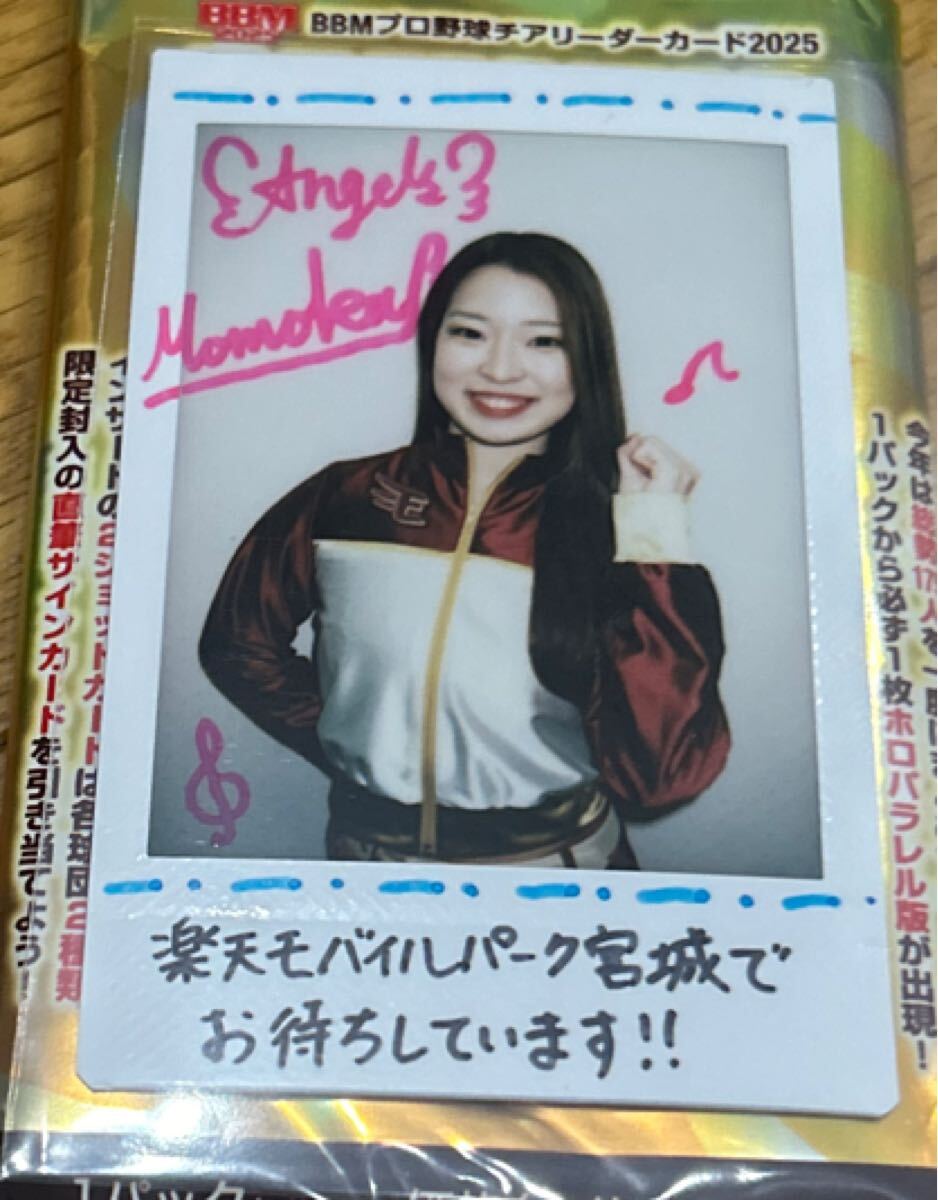 BBM
BBMプロ野球チアリーダーカード2025
EAngels
Momoka
今年は総勢17
1パックから必ず1枚ホロパラレル版が出現!
インサートの2ショットカードは各球団2種類
限定封入の直筆サインカードを引き当てよう!
E
楽天モバイルパーク宮城で
お待ちしています!!
1パック